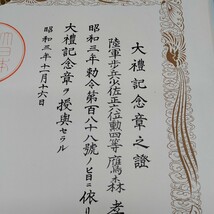 大禮記念章之證
陸軍歩兵少佐正六位勲四等鷹森孝
昭和三年勅令第百八十八號ノ旨ニ依リ
大禮記念章ヲ授與セラル
昭和三年十一月十六日